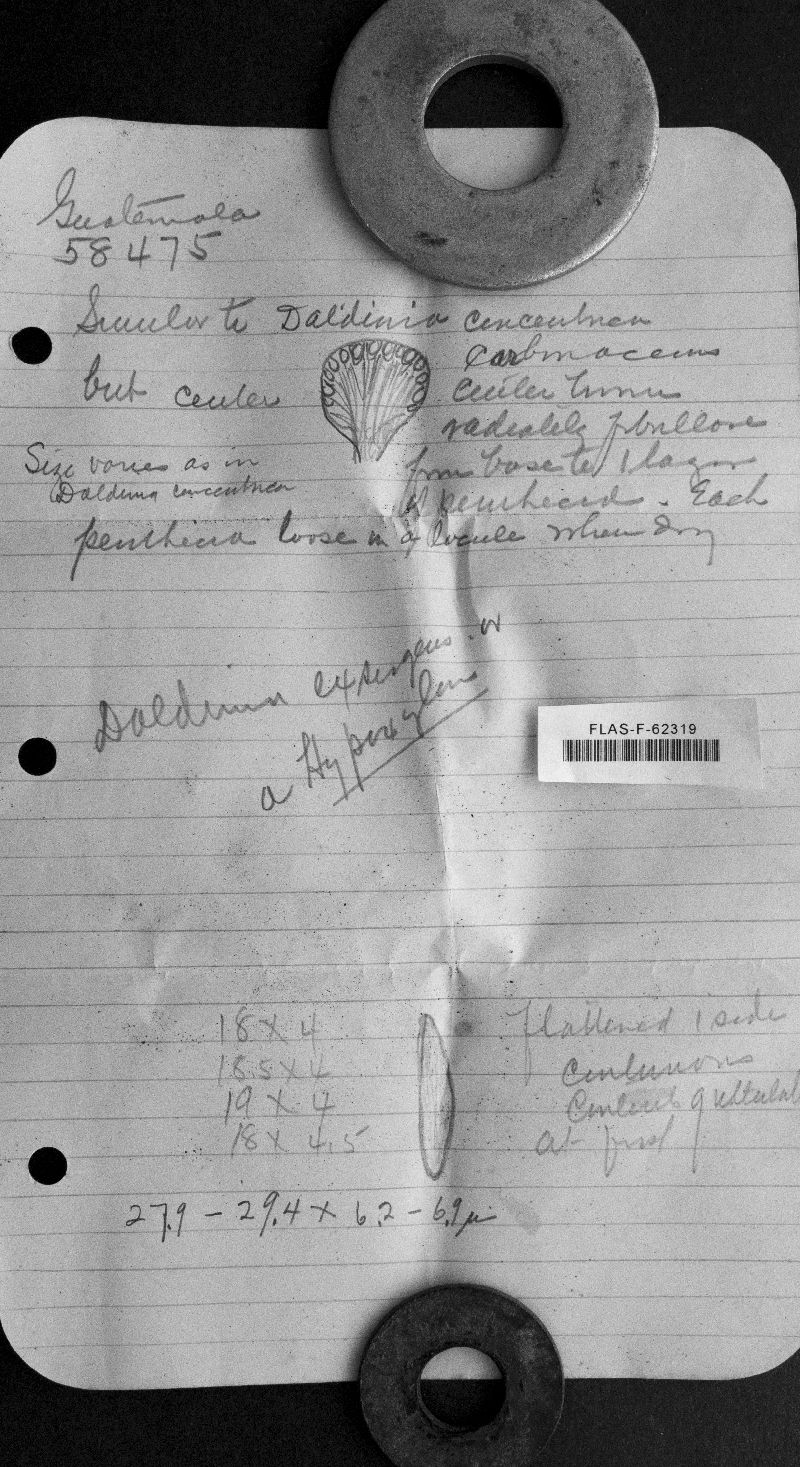 Guatemala
58475
Similar to Daldinia concentrica
carbonaceous
but center
center brown
radiately fibrillose
Size varies as in
Daldinia concentrica
from base to 1 layer
of perithecia. Each
perithecia loose in a locule when dry
Daldinia or
a Hypoxylon
FLAS-F-62319
18 X 4
18.5 X 4
19 X 4
18 X 4.5
flattened 1 side
continuous
Content guttulate
at first
27.9 - 29.4 X 6.2 - 6.9 µ